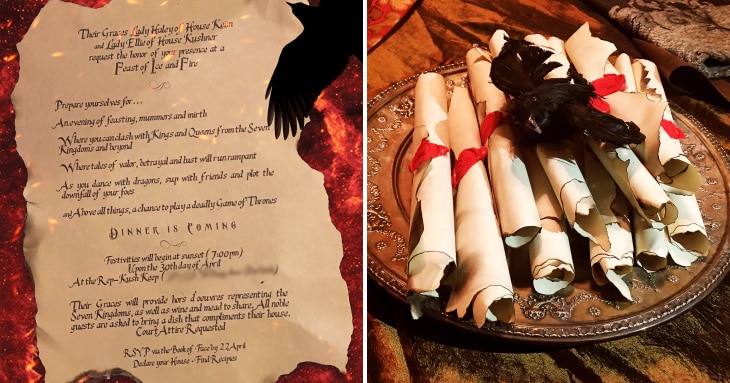 Their Graces Lady Haley of House Kean
and Lady Ellie of House Kushner
request the honor of your presence at a
Feast of Ice and Fire
Prepare yourselves for...
An evening of feasting, mummers and mirth
Where you can clash with Kings and Queens from the Seven
Kingdoms and beyond
Where tales of valor, betrayal and lust will run rampant
As you dance with dragons, sup with friends and plot the
downfall of your foes
and Above all things, a chance to play a deadly Game of Thrones
DINNER IS COMING
Festivities will begin at sunset (7:00pm)
Upon the 30th day of April
At the Rep-Kush Keep (
Their Graces will provide hors d'oeuvres representing the
Seven Kingdoms, as well as wine and mead to share. All noble
guests are asked to bring a dish that compliments their house.
Court Attire Requested
RSVP via the Book of Face by 22 April
Declare your House - Find Recipies